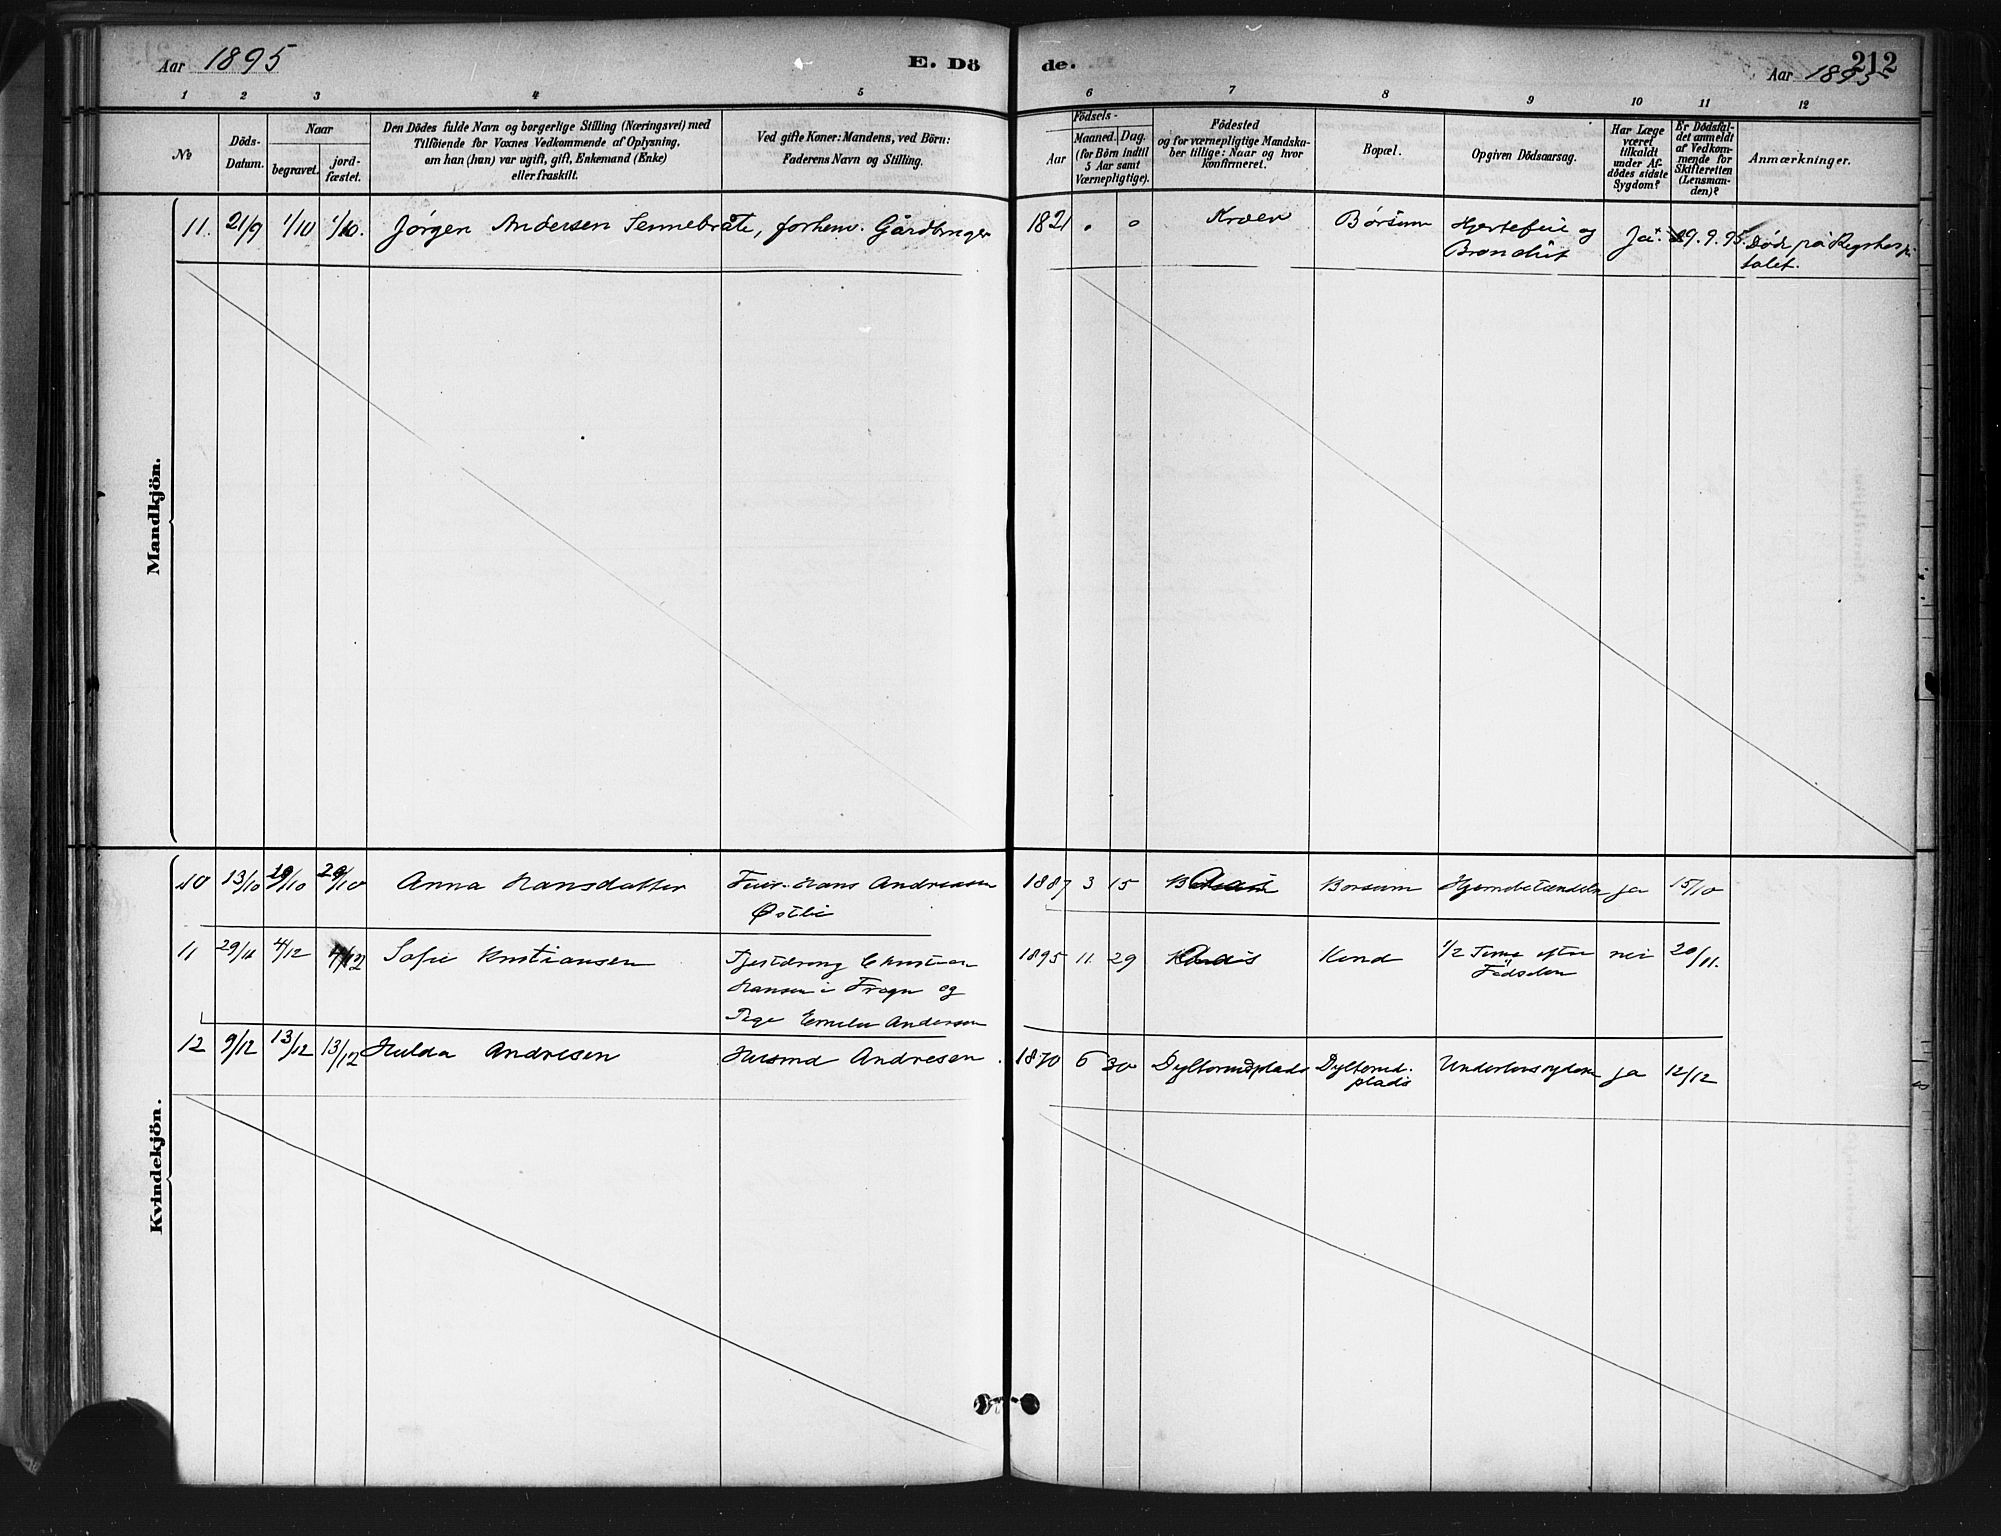 Aar 1895
E. Dö
de.
212
Aar 1895
1 2 3 4 5 6 7 8 9 10 11 12
No
Döds-
Datum.
Naar
begravet.
jord-
fæstet.
Den Dödes fulde Navn og borgerlige Stilling (Næringsvei) med
Tilföiende for Voxnes Vedkommende af Oplysning,
om han (hun) var ugift, gift, Enkemand (Enke)
eller fraskilt.
Ved gifte Koner: Mandens, ved Börn:
Faderens Navn og Stilling.
Födsels-
Aar
Maaned. Dag.
(for Börn indtil
5 Aar samt
Værnepligtige).
Födested
og for værnepligtige Mandska-
ber tillige: Naar og hvor
konfirmeret.
Bopæl.
Opgiven Dödsaarsag.
Har Læge
været
tilkaldt
under Af-
dödes sidste
Sygdom?
Er Dödsfal-
det anmeldt
af Vedkom-
mende for
Skifteretten
(Lensman-
den)?
Anmærkninger.
Mandkjön.
11. 21/9 1/10 1/10. Jørgen Andersen Sennebråte, forhenv. Gårdbruger 1821 Kroer Børsum Hjertefeil og Ja. 29.9.95. Død på Rigshospi
talet.
Kvindekjön.
10 13/10 20/10 20/10 Anna Hansdatter Hans Andreasen 1887 3 15 Aas Borsum Hjernebetændelse ja 15/10
Østbi
11 29/11 4/12 4/12 Sofie Kristiansen Tjestdreng Christian 1895 11 29 Aas 1/2 Time efter nei
Hansen i Frogn og Fødselen
Pige Emilie Andersen
12 9/12 13/12 13/12 Hulda Andresen Husmd Andresen. 1870 6 30 ja 12/12
plads